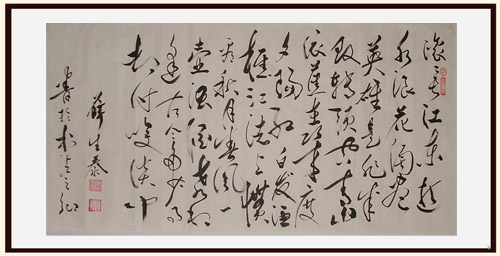 滚滚长江东逝
水浪花淘尽
英雄是非成
败转头空青山
依旧在几度
夕阳红白发渔
樵江渚上惯
看秋月春风一
壶浊酒喜相
逢古今多少事
都付笑谈中
薛生泰
书于